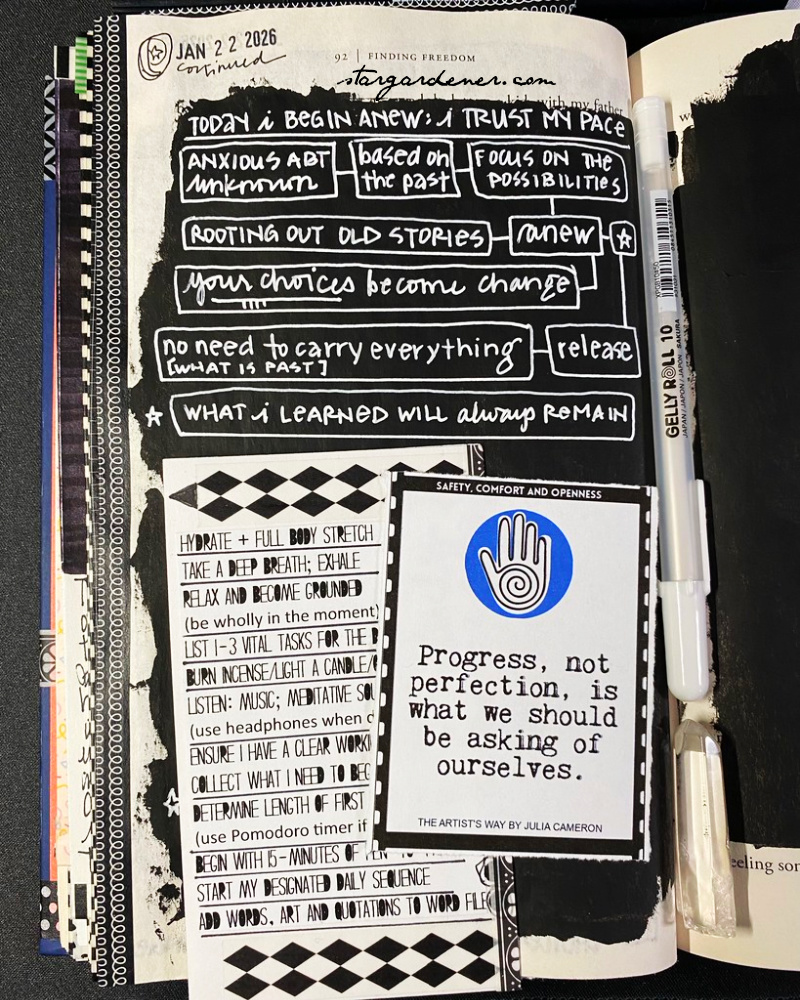 JAN 22 2026
continued
92 | FINDING FREEDOM
stargardener.com
with my father
TODAY i BEGIN ANEW: i TRUST MY PACE
ANXIOUS ABT unknown
based on the past
FOCUS ON THE POSSIBILITIES
ROOTING OUT OLD STORIES
anew
your choices become change
no need to carry everything
[WHAT IS PAST]
release
WHAT i LEARNED WILL always REMAIN
HYDRATE + FULL BODY STRETCH
TAKE A DEEP BREATH; EXHALE
RELAX AND BECOME GROUNDED
(be wholly in the moment)
LIST 1-3 VITAL TASKS FOR THE
BURN INCENSE/LIGHT A CANDLE/
LISTEN: MUSIC; MEDITATIVE
(use headphones when
ENSURE I HAVE A CLEAR
COLLECT WHAT I NEED TO
DETERMINE LENGTH OF FIRST
(use Pomodoro timer if
BEGIN WITH 15-MINUTES OF
START MY DESIGNATED DAILY SEQUENCE
ADD WORDS, ART AND QUOTATIONS TO WORD FILE
SAFETY, COMFORT AND OPENNESS
Progress, not
perfection, is
what we should
be asking of
ourselves.
THE ARTIST'S WAY BY JULIA CAMERON
GELLY ROLL 10
JAPAN / JAPON / JAPÓN SAKURA
XPGB10#50